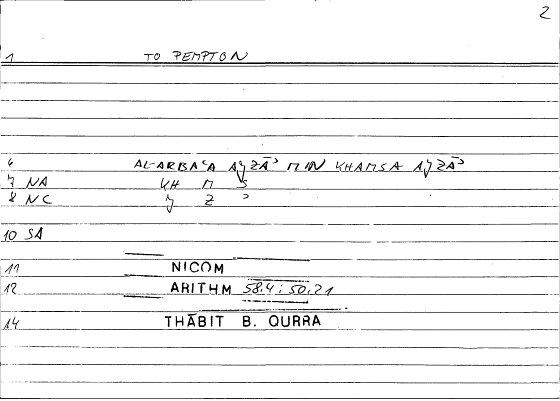 2
1 TO PEMPTON
6 AL-ARBAʿA AJZĀʾ MIN KHAMSA AJZĀʾ
7 NA KH M S
8 NC J Z ʾ
10 SA
11 NICOM
12 ARITHM 58.4 ; 50.21
14 THĀBIT B. QURRA